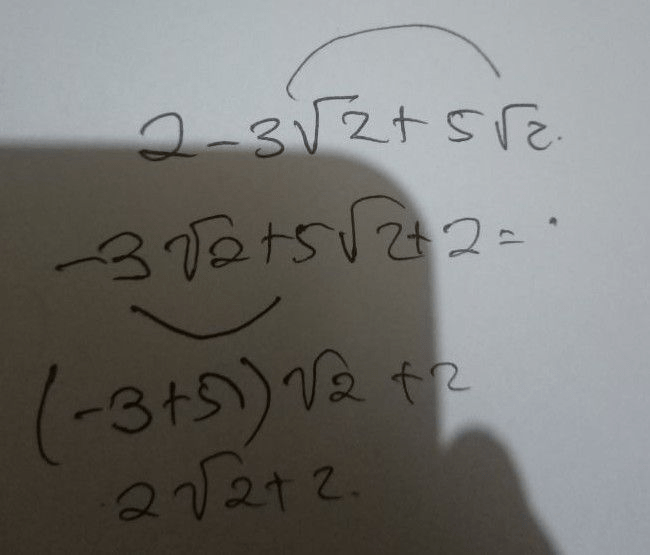 2-3√2+5√2.
-3√2+5√2+2=.
(-3+5)√2+2
2√2+2.